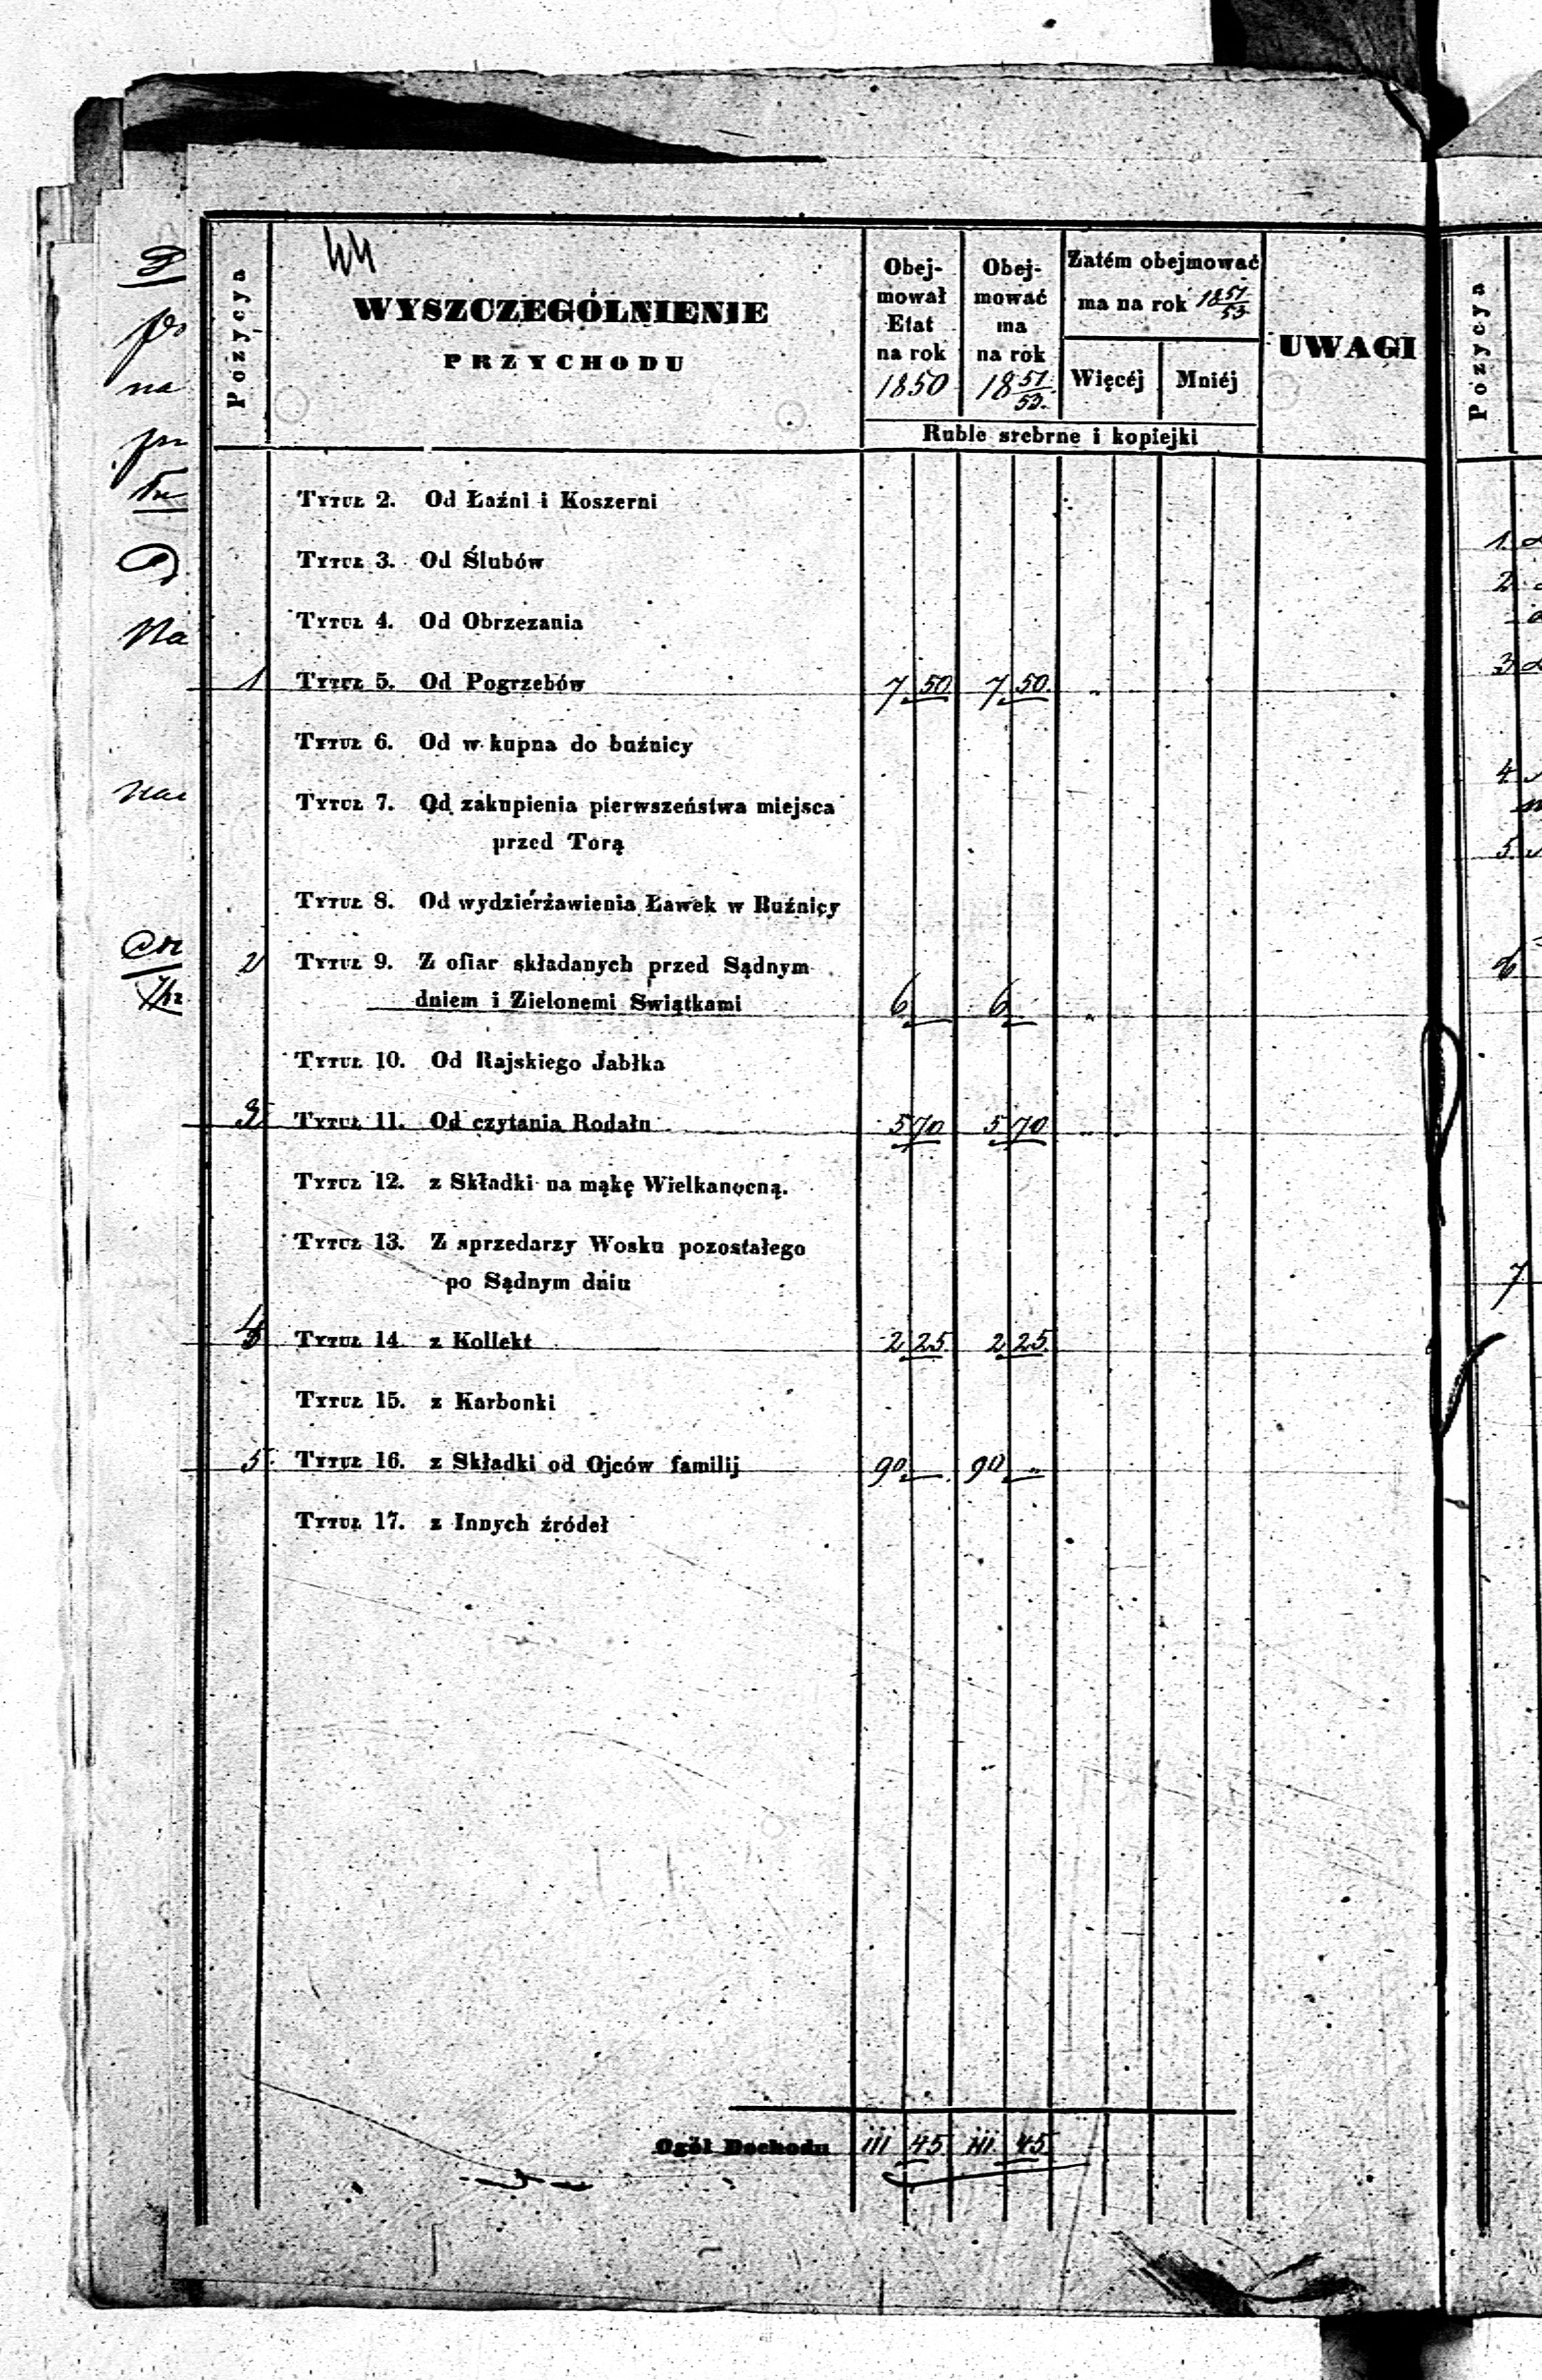 44
Pozycya
WYSZCZEGÓLNIENIE
PRZYCHODU
Obej-
mował
Etat
na rok
1850
Obej-
mować
ma
na rok
18 51/53.
Zatém obejmować
ma na rok 18 51/53
Więcéj Mniéj
UWAGI
Ruble srebrne i kopiejki
Tytuł 2. Od Łaźni i Koszerni
Tytuł 3. Od Ślubów
Tytuł 4. Od Obrzezania
1 Tytuł 5. Od Pogrzebów 7 50 7 50.
Tytuł 6. Od w kupna do buźnicy
Tytuł 7. Od zakupienia pierwszeństwa miejsca
przed Torą
Tytuł 8. Od wydziérżawienia Ławek w Buźnicy
2 Tytuł 9. Z ofiar składanych przed Sądnym
dniem i Zielonemi Swiątkami 6 — 6 —
Tytuł 10. Od Rajskiego Jabłka
3 Tytuł 11. Od czytania Rodału 5 70 5 70
Tytuł 12. z Składki na mąkę Wielkanocną.
Tytuł 13. Z sprzedarzy Wosku pozostałego
po Sądnym dniu
4 Tytuł 14. z Kollekt 2 25 2 25
Tytuł 15. z Karbonki
5 Tytuł 16. z Składki od Ojców familij 90 — 90 —
Tytuł 17. z Innych źródeł
Ogół Dochodu 111 45 111 45
Pozycya
1.
2.
3
4
5
6
7
na
Na